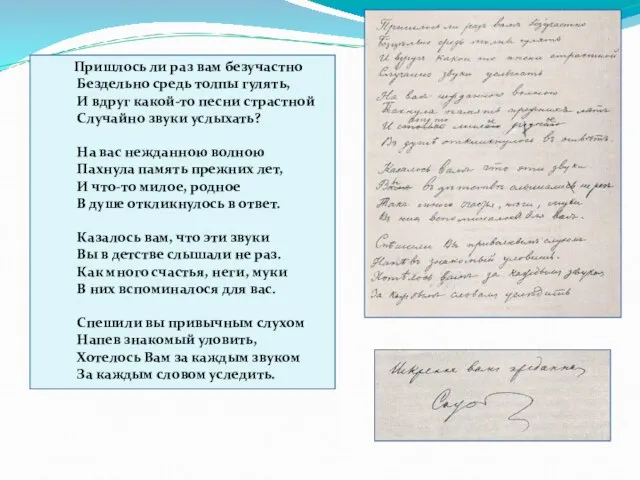 Пришлось ли раз вам безучастно
Бездельно средь толпы гулять,
И вдруг какой-то песни страстной
Случайно звуки услыхать?
На вас нежданною волною
Пахнула память прежних лет,
И что-то милое, родное
В душе откликнулось в ответ.
Казалось вам, что эти звуки
Вы в детстве слышали не раз.
Как много счастья, неги, муки
В них вспоминалося для вас.
Спешили вы привычным слухом
Напев знакомый уловить,
Хотелось Вам за каждым звуком
За каждым словом уследить.
Пришлось ли разъ вамъ безучастно
Бездѣльно средь толпы гулять
И вдругъ какой то пѣсни страстной
Случайно звуки услыхать
На васъ нежданною волною
Пахнула память прежнихъ лѣтъ
И милое родное
Въ душѣ откликнулось въ отвѣтъ.
Казалось вамъ что эти звуки
Вы въ дѣтствѣ слышали не разъ
Такъ много счастья, нѣги, муки
Въ нихъ вспоминалося для васъ.
Спѣшили Вы привычнымъ слухомъ
Напѣвъ знакомый уловить
Хотѣлось вамъ за каждымъ звукомъ
За каждымъ словомъ услѣдить
Искренне вамъ преданная